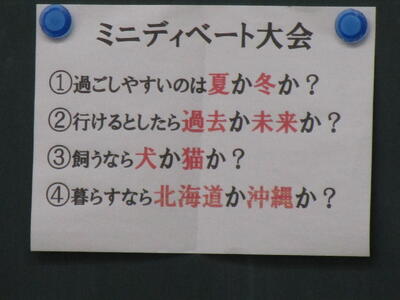 ミニディベート大会
①過ごしやすいのは夏か冬か？
②行けるとしたら過去か未来か？
③飼うなら犬か猫か？
④暮らすなら北海道か沖縄か？